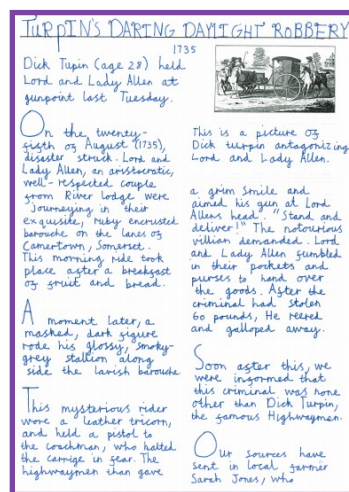 TURPIN'S DARING DAYLIGHT ROBBERY
1735
Dick Tupin (age 28) held
Lord and Lady Allen at
gunpoint last Tuesday.
On the twenty-
fifth of August (1735),
disaster struck. Lord and
Lady Allen, an aristocratic,
well-respected couple
from River lodge were
journeying in their
exquisite, ruby encrusted
barouche on the lanes of
Camertown, Somerset.
This morning ride took
place after a breakfast
of fruit and bread.
A moment later, a
masked, dark figure
rode his glossy, smoky-
grey stallion along
side the lavish barouche
This mysterious rider
wore a leather tricorn,
and held a pistol to
the coachman, who halted
the carrige in fear. The
highwaymen than gave
This is a picture of
Dick turpin antagonizing
Lord and Lady Allen.
a grim smile and
aimed his gun at Lord
Allens head. "Stand and
deliver!" The notourious
villian demanded. Lord
and Lady Allen fumbled
in their pockets and
purses to hand over
the goods. After the
criminal had stolen
60 pounds, He reered
and galloped away.
Soon after this, we
were informed that
this criminal was none
other than Dick Turpin,
the famous Highwaymen.
Our sources have
sent in local farmer
Sarah Jones, who